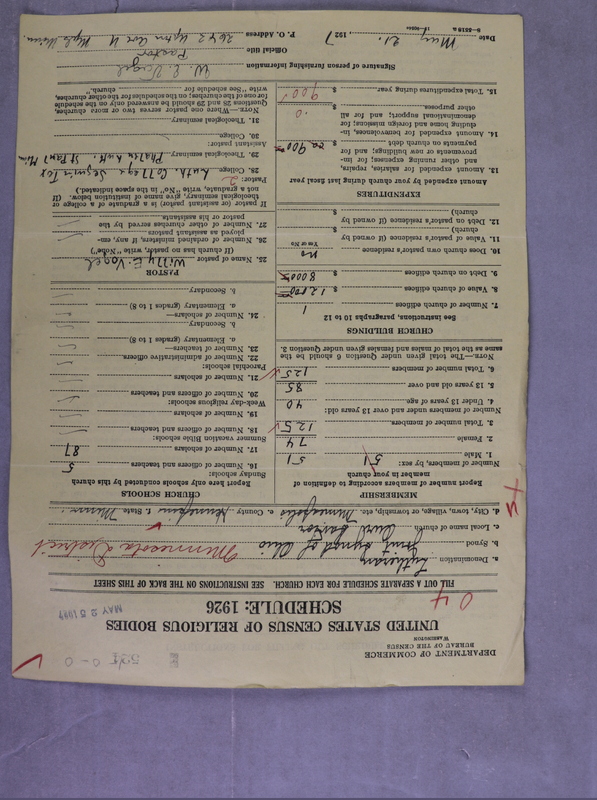 DEPARTMENT OF COMMERCE
BUREAU OF THE CENSUS
WASHINGTON
535 0-0
UNITED STATES CENSUS OF RELIGIOUS BODIES
SCHEDULE: 1926
04
MAY 25 1927
FILL OUT A SEPARATE SCHEDULE FOR EACH CHURCH. SEE INSTRUCTIONS ON THE BACK OF THIS SHEET
a. Denomination Lutheran
b. Synod Joint Synod of Ohio Minnesota District
c. Local name of church Our Savior
d. City, town, village, or township, etc. Minneapolis e. County Hennepin f. State Minn.
MEMBERSHIP
Number of members according to definition of member in your church
Number of members, by sex:
1. Male 51 51
2. Female 74
3. Total number of members 125
Number of members under and over 13 years old:
4. Under 13 years of age 40
5. 13 years old and over 85
6. Total number of members 125
NOTE.—The total given under Question 6 should be the same as the total of males and females given under Question 3.
CHURCH BUILDINGS
See instructions, paragraphs 10 to 12
7. Number of church edifices 1
8. Value of church edifices $ 12000
9. Debt on church edifices $ 8000
10. Does church own pastor's residence no
Yes or No
11. Value of pastor's residence (if owned by church) $
12. Debt on pastor's residence (if owned by church) $
EXPENDITURES
Amount expended by your church during last fiscal year
13. Amount expended for salaries, repairs, and other running expenses; for improvements or new buildings; and for payments on church debt $ ca 900
14. Amount expended for benevolences, including home and foreign missions; for denominational support; and for all other purposes $ 0
15. Total expenditures during year $ 900
CHURCH SCHOOLS
Report here only schools conducted by this church
Sunday schools:
16. Number of officers and teachers 5
17. Number of scholars 87
Summer vacation Bible schools:
18. Number of officers and teachers
19. Number of scholars
Week-day religious schools:
20. Number of officers and teachers
21. Number of scholars
Parochial schools:
22. Number of administrative officers
23. Number of teachers—
a. Elementary (grades 1 to 8)
b. Secondary
24. Number of scholars—
a. Elementary (grades 1 to 8)
b. Secondary
PASTOR
25. Name of pastor Willy E. Vogel
(If church has no pastor, write "None")
26. Number of ordained ministers, if any, employed as assistant pastors
27. Number of other churches served by the pastor or his assistants
If pastor (or assistant pastor) is a graduate of a college or theological seminary, give name of institution below. (If not a graduate, write "No" in the space indicated.)
Pastor: 2
28. College Luth. College Seguin Tex
29. Theological seminary Phalen Luth. St Paul Min
Assistant pastor:
30. College
31. Theological seminary
NOTE.—When one pastor serves two or more churches, Questions 28 and 29 should be answered only on the schedule for one of the churches; on the schedules for the other churches, write "See schedule for church."
Signature of person furnishing information W. E. Vogel
Official title Pastor
Date May 21, 1927 P. O. Address 2642 Upton Ave N Mpls Minn.
8—5518 a